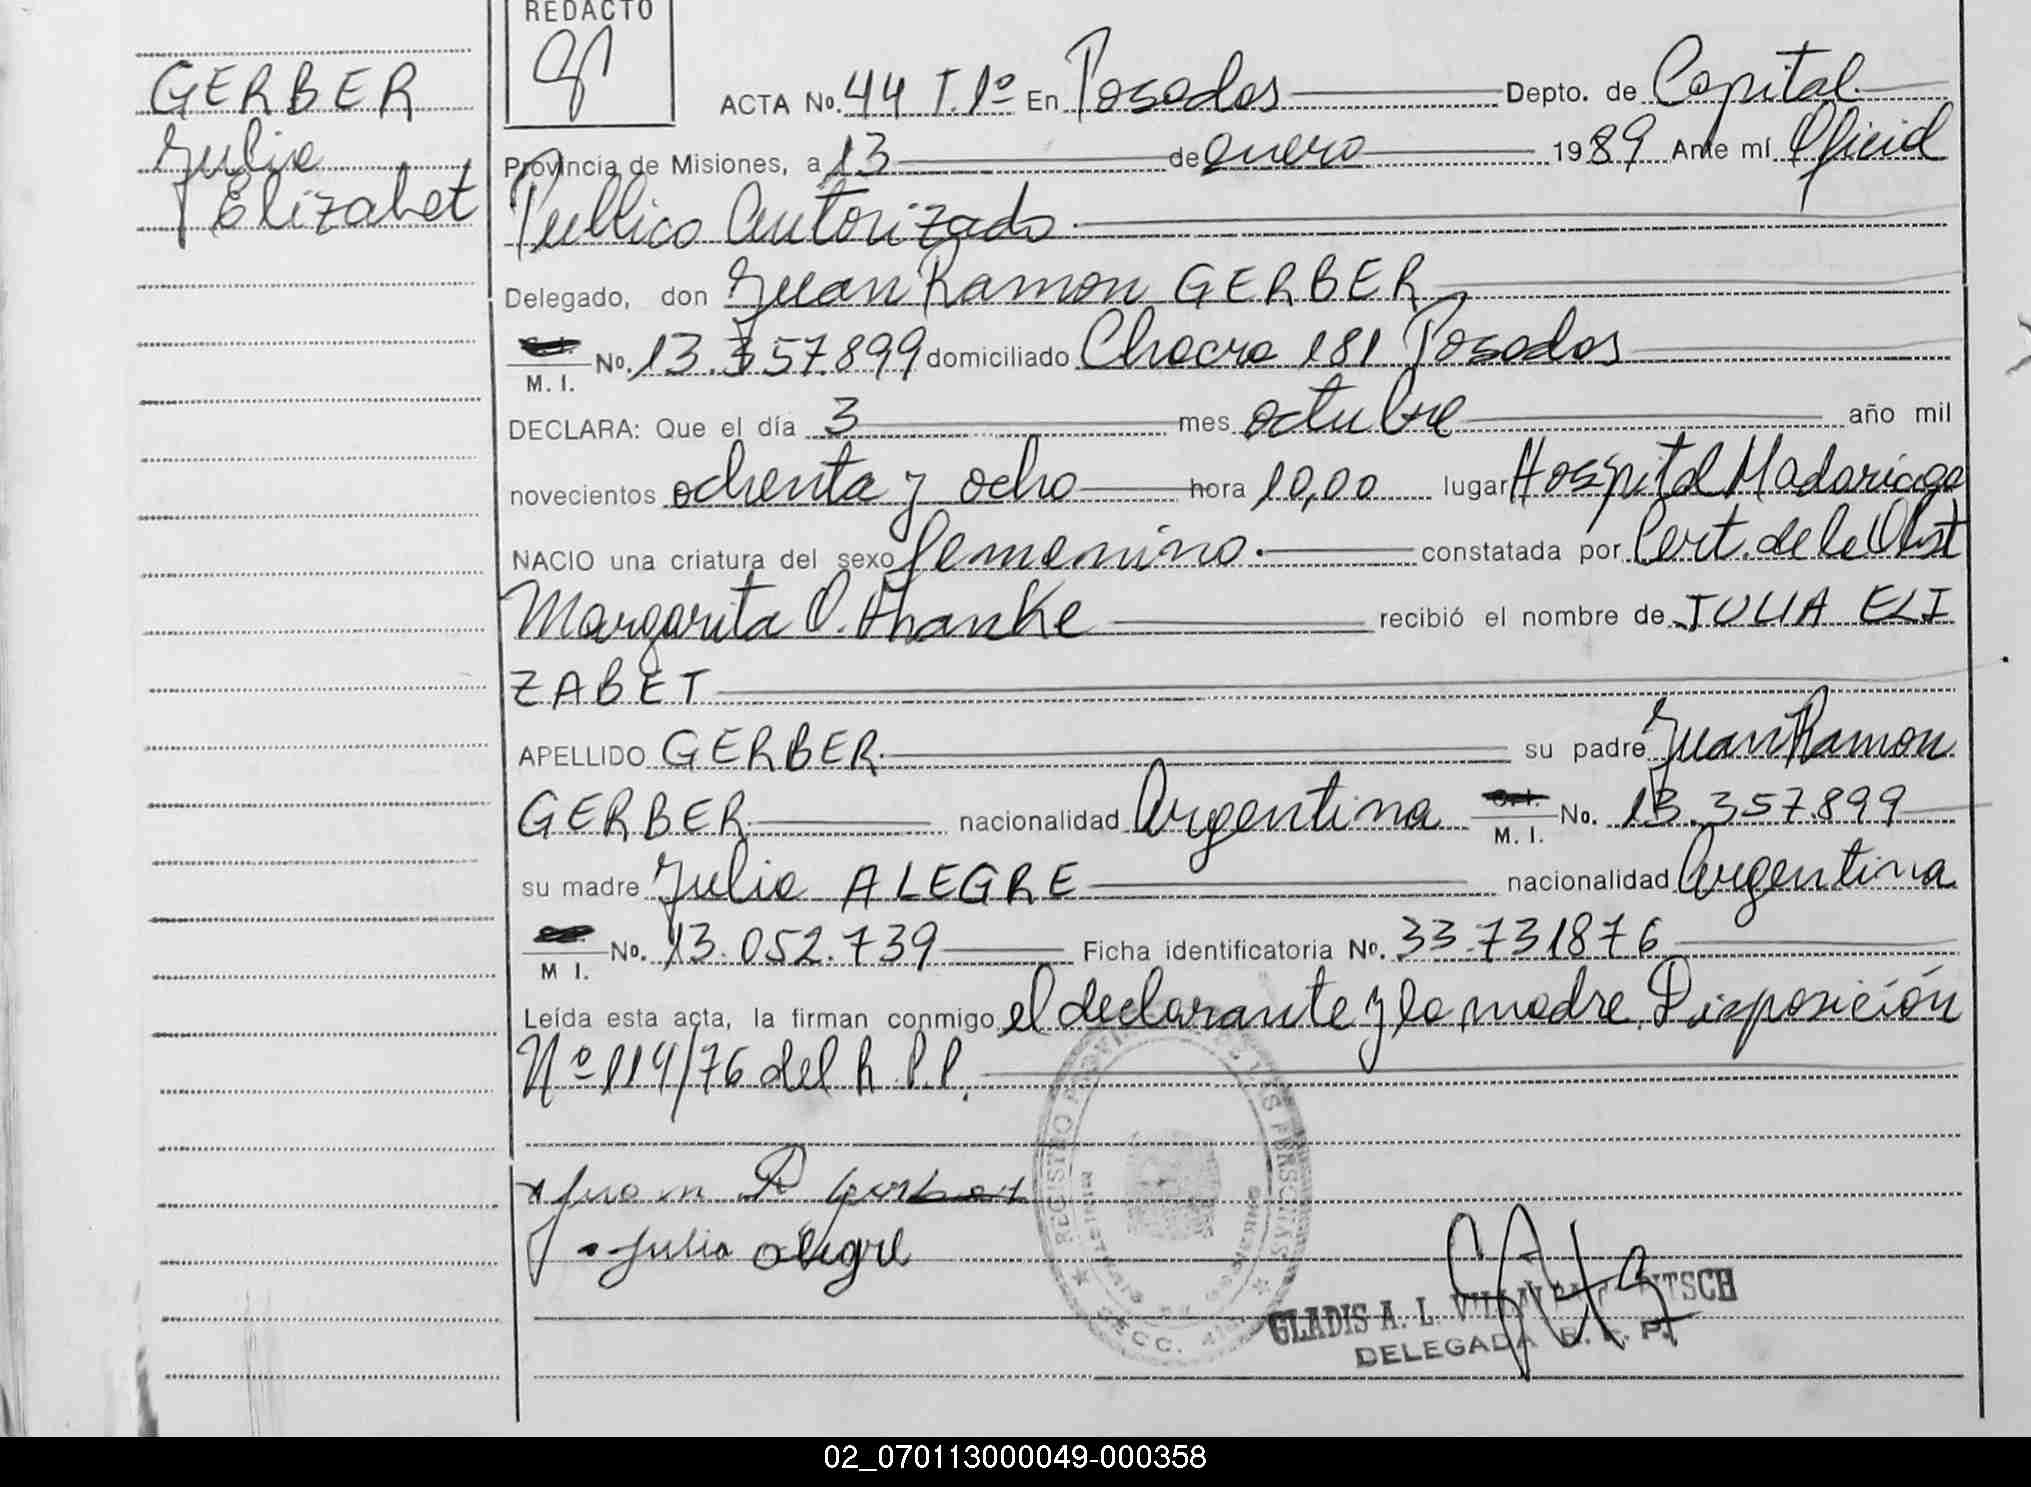 REDACTO
GERBER
Julia
Elizabet
ACTA No. 44 T.1º En Posadas Depto. de Capital
Provincia de Misiones, a 13 de enero 1989 Ante mí Oficial
Publico Autorizado
Delegado, don Juan Ramon GERBER
M. I. No. 13.357.899 domiciliado Chacra 181 Posadas
DECLARA: Que el día 3 mes octubre año mil
novecientos ochenta y ocho hora 10,00 lugar Hospital Madariaga
NACIO una criatura del sexo femenino. constatada por Cert. de la Obst
Margarita O. Hanke recibió el nombre de JULIA ELI
ZABET
APELLIDO GERBER su padre Juan Ramon
GERBER nacionalidad Argentina M. I. No. 13.357.899
su madre Julia ALEGRE nacionalidad Argentina
M I. No. 13.052.739 Ficha identificatoria No. 33.731876
Leída esta acta, la firman conmigo el declarante y la madre. Disposición
Nº 114/76 del R.P.P.
Juan R Gerber
Julia Alegre
REGISTRO PROVINCIAL DE LAS PERSONAS
MINISTERIO DE GOBIERNO
SECC.
GLADIS A. L.
DELEGADA R. P. P.
02_070113000049-000358